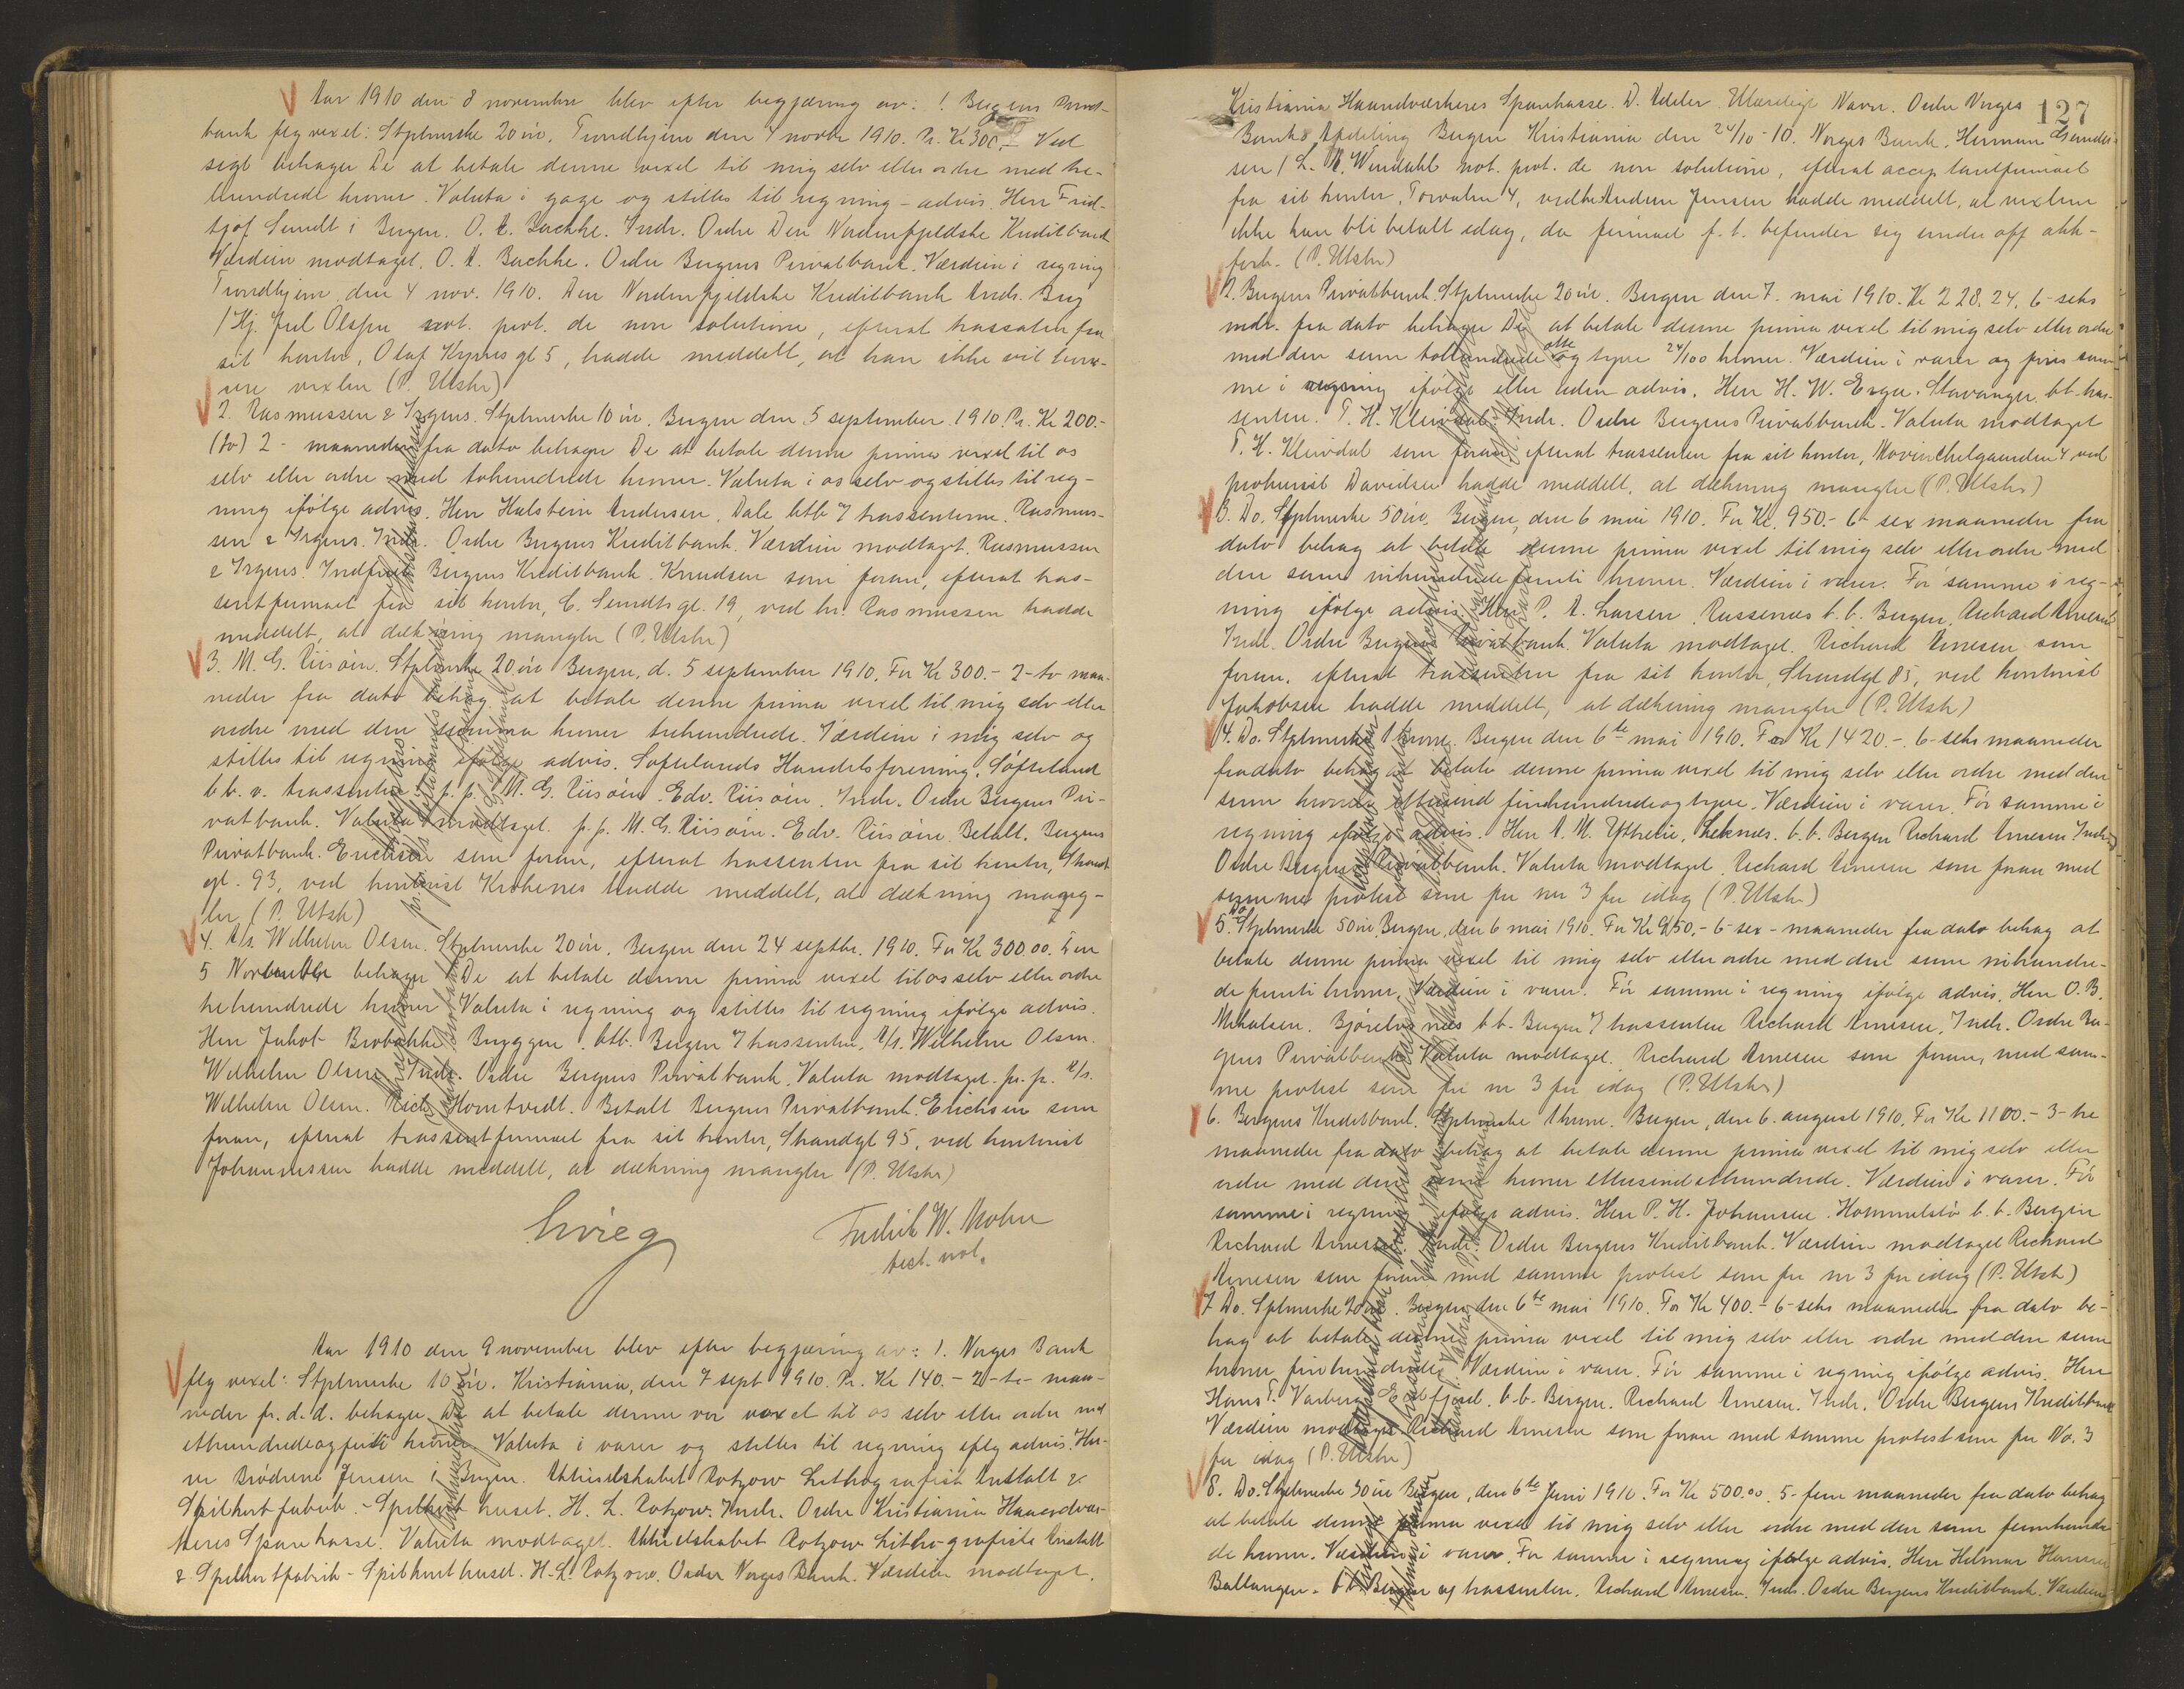 Aar 1910 den 8 november blev efter begjæring av: 1. Bergens Privat-
bank flg vexel: Stplmerke 20 øre. Trondhjem den 4 novbr 1910. Pr. Kr 300,- Ved
sigt behager De at betale denne vexel til mig selv eller ordre med tre-
hundrede kroner. Valuta i gage og stilles til regning - advis. Herr Frid-
tjof Sundt i Bergen. O. A. Bachke. Indr. Ordre Den Nordenfjeldske Kreditbank
Værdien modtaget. O. A. Bachke. Ordre Bergens Privatbank. Værdien i regning
Trondhjem, den 4 nov. 1910. Den Nordenfjeldske Kreditbank Indr. Brg
/ Kj. Juel Olsen not. prot. de non solutione, efterat trassaten fra
sit kontor, Olaf Kyrres gt 5, hadde meddelt, at han ikke vil hono-
rere vexlen (P. Utskr)
2. Rasmussen & Irgens. Stplmerke 10 øre. Bergen den 5 september 1910. Pr. Kr 200.-
(to) 2 - maaneder fra dato behager De at betale denne prima vexel til os
selv eller ordre med tohundrede kroner. Valuta i os selv og stilles til reg-
ning ifølge advis. Herr Halstein Andersen, Dale btb trassenterne. Rasmus-
sen & Irgens. Indr. Ordre Bergens Kreditbank. Værdien modtaget. Rasmussen
& Irgens. Indfriet Bergens Kreditbank. Knudsen som foran, efterat tras-
sentfirmaet fra sit kontor, C. Sundts gt. 19, ved hr. Rasmussen hadde
meddelt, at dækning mangler (P. Utskr)
3. M. G. Riisøen. Stplmerke 20 øre Bergen, d. 5 september 1910. For Kr 300.- 2-to maa-
neder fra dato behag at betale denne prima vexel til mig selv eller
ordre med den summa kroner trehundrede. Værdien i mig selv og
stilles til regning ifølge advis. Søftelands Handelsforening, Søfteland
b.b. v. trassenten. p.p. M. G. Riisøen. Edv. Riisøen. Indr. Ordre Bergens Pri-
vatbank. Valuta modtaget. p.p. M. G. Riisøen. Edv. Riisøen. Betalt. Bergens
Privatbank. Erichsen som foran, efterat trassenten fra sit kontor, Strand-
gt. 93, ved kontorist Krohnes hadde meddelt, at dækning mang-
ler (P. Utsk)
4. A/s. Wilhelm Olsen. Stplmerke 20 øre. Bergen den 24 septbr. 1910. For Kr 300.00. Den
5 November behager De at betale denne prima vexel til os selv eller ordre
trehundrede kroner Valuta i regning og stilles til regning ifølge advis.
Herr Jakob Brobakke Bryggen. btb. Bergen trassenten. A/s. Wilhelm Olsen.
Wilhelm Olsen. Indr. Ordre Bergens Privatbank. Valuta modtaget. pr. pr. A/s.
Wilhelm Olsen. Rich. Homtvedt. Betalt Bergens Privatbank. Erichsen som
foran, efterat trassentfirmaet fra sit kontor, Strandgt 95, ved kontorist
Johannessen hadde meddelt, at dækning mangler (P. Utskr)
Fredrik W. Mohn
test. not.
Aar 1910 den 9 november blev efter begjæring av: 1. Norges Bank
flg vexel: Stplmerke 10 øre. Kristiania, den 7 sept 1910. Pr. Kr 140.- 2-to- maa-
neder fr. d. d. behager De at betale denne vor vexel til os selv eller ordre med
ethundredeogførti kroner Valuta i varer og stilles til regning iflg advis. Her-
rer Brødrene Jensen i Bergen. Aktieselskabet Rotzow Lithografisk Anstalt &
Spilkortfabrik. - Spilkorthuset. H. L. Rotzow. Indr. Ordre Kristiania Haandvær-
keres Sparekasse. Valuta modtaget. Aktieselskabet Rotzow Lithografiske Anstalt
& Spilkortfabrik - Spilkorthuset. H. L. Rotzow. Ordre Norges Bank. Værdien modtaget.
127
Kristiania Haandværkeres Sparekasse. D. Ulæselige Navn. Ordre Norges
Banks Afdeling Bergen Kristiania den 24/10-10. Norges Bank. Herman Gunder-
sen / L. M. Wendahl not. prot. de non solutione, efterat acceptantfirmaet
fra sit kontor, Torvalm 4, ved hr Andreas Jensen hadde meddelt, at vexlen
ikke kan bli betalt idag, da firmaet f. t. befinder sig under off akk-
forh. (P. Utskr)
2. Bergens Privatbank. Stplmerke 20 øre. Bergen den 7. mai 1910. Kr 228.24. 6-seks
mdr. fra dato behager De at betale denne prima vexel til mig selv eller ordre
med den sum tohundrede otte og tyve 24/100 kroner. Værdien i varer og føres sam-
me i regning ifølge eller uden advis. Herr H. W. Enger. Stavanger bt. tras-
senten. T. H. Kleivdal. Indr. Ordre Bergens Privatbank. Valuta modtaget
T. H. Kleivdal som foran, efterat trassenten fra sit kontor, Hovinckelgaarden 4 ved
prokurist Davidsen hadde meddelt, at dækning mangler (P. Utskr)
3. Do. Stplmerke 50 øre. Bergen, den 6 mai 1910. For Kr. 950.- 6- sex maaneder fra
dato behag at betale denne prima vexel til mig selv eller ordre med
den sum nihundredefemti kroner. Værdien i varer. Før samme i reg-
ning ifølge advis. Herr P. A. Larsen. Russenes b. b. Bergen. Richard Arnesen
Indr. Ordre Bergens Privatbank. Valuta modtaget. Richard Arnesen som
foran, efterat trassenten fra sit kontor, Strandgt 85, ved kontorist
Jakobsen hadde meddelt, at dækning mangler (P. Utsk)
4. Do. Stplmerke 1 krone. Bergen den 6te mai 1910. For Kr 1420.-. 6-seks maaneder
fra dato behag at betale denne prima vexel til mig selv eller ordre med den
sum kroner ettusind firehundredeogtyve. Værdien i varer. Før samme i
regning ifølge advis. Herr A. M. Yttreie, Leknes. b. b. Bergen Richard Arnesen Indr.
Ordre Bergens Privatbank. Valuta modtaget. Richard Arnesen som foran med
samme protest som for nr 3 for idag (P. Utskr)
5. Do Stplmerke 50 øre, Bergen, den 6 mai 1910. For Kr 950.- 6- sex - maaneder fra dato behag at
betale denne prima vexel til mig selv eller ordre med den sum nihundre-
de femti kroner, Værdien i varer. Før samme i regning ifølge advis. Herr O. B.
Mikalsen. Bjørelvsnes b.b. Bergen trassenten Richard Arnesen. Indr. Ordre Ber-
gens Privatbank. Valuta modtaget. Richard Arnesen som foran, med sam-
me protest som for nr 3 for idag (P. Utskr)
6. Bergens Kreditbank. Stplmerke 1 krone. Bergen, den 6. august 1910. For Kr. 1100.- 3- tre
maaneder fra dato behag at betale denne prima vexel til mig selv eller
ordre med den sum kroner ettusindethundrede. Værdien i varer. Før
samme i regning ifølge advis. Herr P. H. Johansen. Hommelstø b. b. Bergen
Richard Arnesen. Indr. Ordre Bergens Kreditbank. Værdien modtaget Richard
Arnesen som foran med samme protest som for nr 3 for idag (P. Utsk)
7 Do. Splmerke 20 øre. Bergen den 6te mai 1910. For Kr 400.- 6-seks maaneder fra dato be-
hag at betale denne prima vexel til mig selv eller ordre med den sum
kroner firehundrede. Værdien i varer. Før samme i regning ifølge advis. Herr
Hans T. Varberg. b.b. Bergen. Richard Arnesen. Indr. Ordre Bergens Kreditbank
Værdien modtaget Richard Arnesen som foran med samme protest som for No. 3
for idag (P. Utskr)
8. Do. Stplmerke 30 øre Bergen, den 6te Juni 1910. For Kr 500.00. 5- fem maaneder fra dato behag
at betale denne prima vexel til mig selv eller ordre med den sum femhundre-
de kroner. Værdien i varer. For samme i regning ifølge advis. Herr Helmer Hansen
Ballangen. b.b. Bergen og trassenten. Richard Arnesen. Indr. Ordre Bergens Kreditbank. Værdien